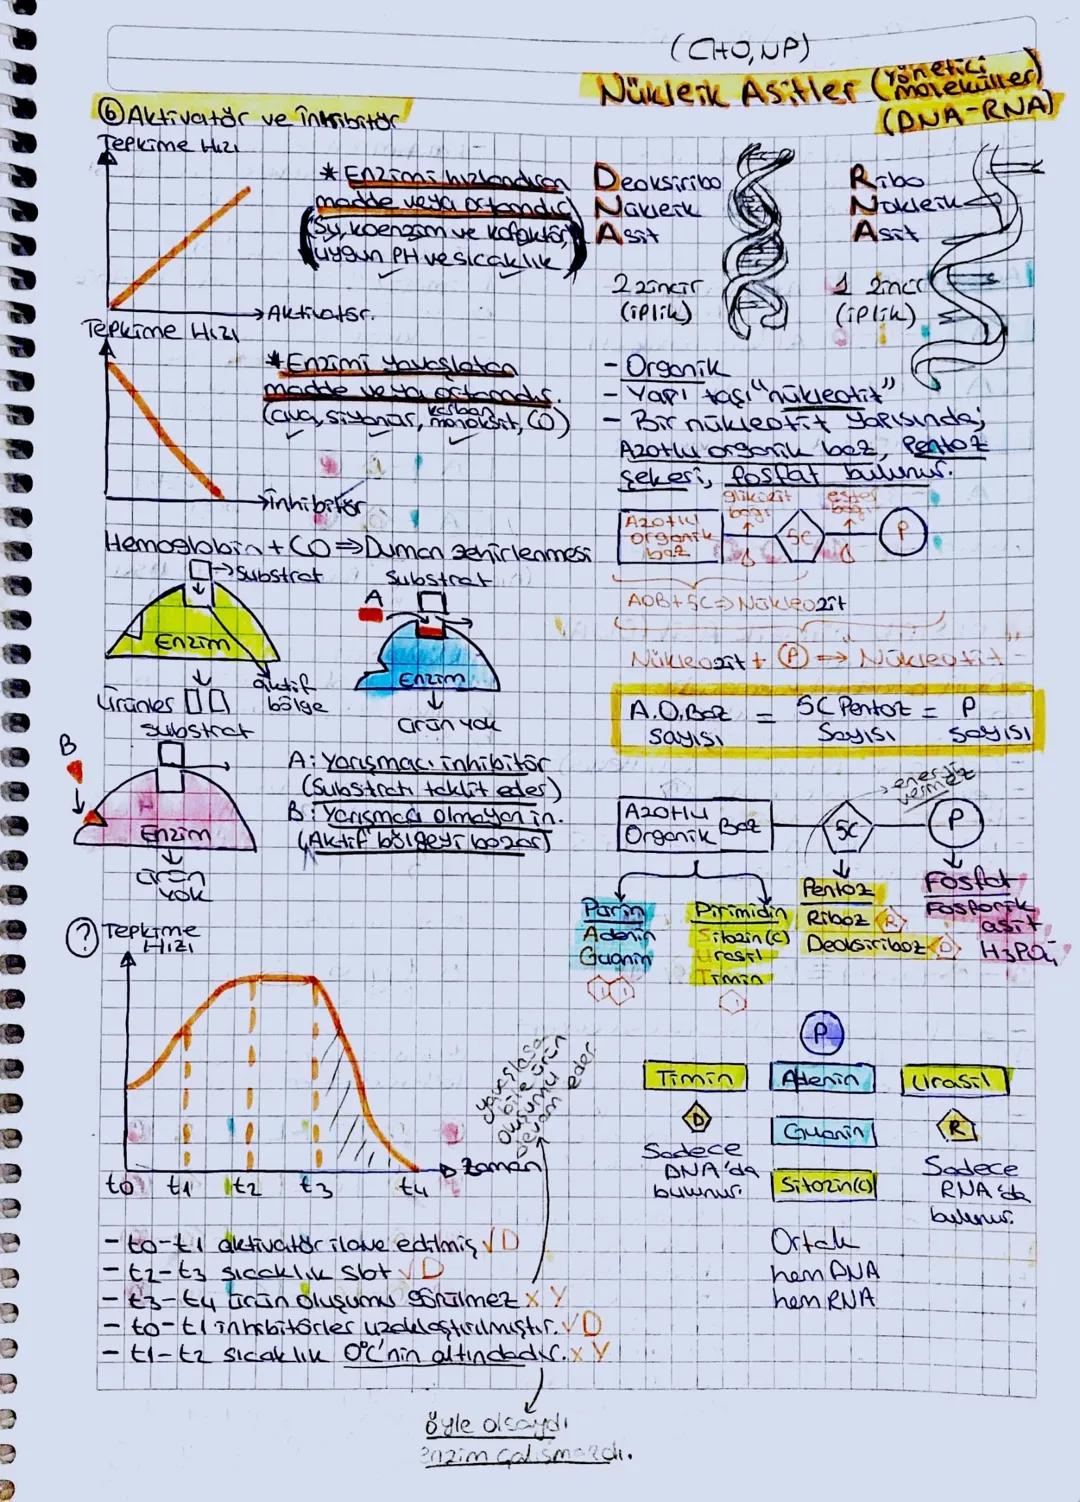 (CHO,NP)
Nükleik Asitler (Yönetici moleküller)
(DNA-RNA)
⑥ Aktivatör ve İnhibitör
Tepkime Hızı
* Enzimi hızlandıran
madde veya ortamdır.
(Sy, koenzim ve kofaktör,
uygun PH ve sıcaklık)
→ Aktivatör.
Tepkime Hızı
* Enzimi yavaşlatan
madde veya ortamdır.
(civa, siyanür, karbon monoksit, CO)
→ inhibitör
Hemoglobin + CO ⇒ Duman zehirlenmesi
→ Substrat
Enzim
Ürünler
aktif
bölge
Substrat
A
Enzim
ürün yok
substrat
B
Enzim
ürün
yok
A: Yarışmacı inhibitör
(Substratı taklit eder)
B: Yarışmacı olmayan in.
(Aktif bölgeyi bozar)
? Tepkime
Hızı
yavaşlasa
bile ürün
oluşumu
devam eder
Zaman
t0 t1 t2 t3 t4
- t0-t1 aktivatör ilave edilmiş √ D
- t2-t3 sıcaklık sbt √ D
- t3-t4 ürün oluşumu görülmez x Y
- t0-t1 inhibitörler uzaklaştırılmıştır. √ D
- t1-t2 sıcaklık 0°C'nin altındadır. x Y
öyle olsaydı
enzim çalışmazdı.
Deoksiribo
Nükleik
Asit
2 zincir
(iplik)
Ribo
Nükleik
Asit
1 zincir
(iplik)
- Organik
- Yapı taşı "nükleotit"
- Bir nükleotit yapısında;
Azotlu organik baz, Pentoz
şekeri, fosfat bulunur.
glikozit
bağı
ester
bağı
Azotlu
organik
baz
5C
P
AOB+5C ⇒ Nükleozit
Nükleozit + P ⇒ Nükleotit
A.O.Baz = 5C Pentoz = P
sayısı Sayısı sayısı
enerji
vermez
Azotlu
Organik Baz
5C
P
Pürin
Adenin
Guanin
Pirimidin
Sitozin(c)
Urasil
Timin
Pentoz
Riboz R
Deoksiriboz D
Fosfat
Fosforik
asit
H3PO4
P
Timin
Adenin
Urasil
D
Guanin
R
Sadece
DNA'da
bulunur.
Sitozin(c)
Sadece
RNA'da
bulunur.
Ortak
hem DNA
hem RNA